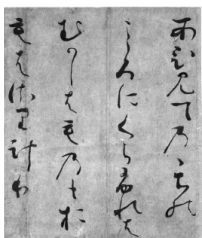 あひ見てのゝちの
こゝろにくらふれは
むかしはものもお
もはさりけり